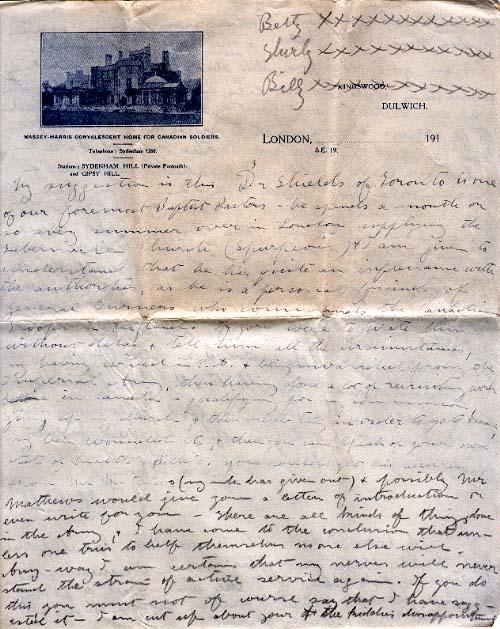 Betty X X X X X X X X X X
Shirly X X X X X X X X X
Billy X X X X X X X X X
KINGSWOOD,
DULWICH.
MASSEY-HARRIS CONVALESCENT HOME FOR CANADIAN SOLDIERS.
Telephone: Sydenham
Stations: SYDENHAM HILL (Private Footpath).
and GIPSY HILL.
LONDON, 191
S.E. 19.
My suggestion is this Dr Shields of Toronto is one
of our foremost Baptist Pastors - he spends a month or
so every summer over in London supplying the
Tabernacle Church (Spurgeon) & I am given to
understand that he has quite an influence with
the authorities, as he is a personal friend of
General Turner who commands the Canadian
troops in England. If you were to write him
without delay & tell him all the circumstances,
my having served in S.A. & being invalided from the
Imperial Army, then having done a lot of recruiting work
in Canada & qualifying for a commission
giving up my church & then in order to go to France
my being wounded etc & then you can speak of your own
state of health & Billie's, you
(my ink has given out) & possibly Mr
Mathews would give you a letter of introduction or
even write for you - There are all kinds of things done
in the Army, & I have come to the conclusion that un-
less one tries to help themselves no one else will.
Any-way I am certain that my nerves will never
stand the strain of active service again. If you do
this you must not of course say that I have sugg-
ested it - I am cut up about your & the kiddies disappointment